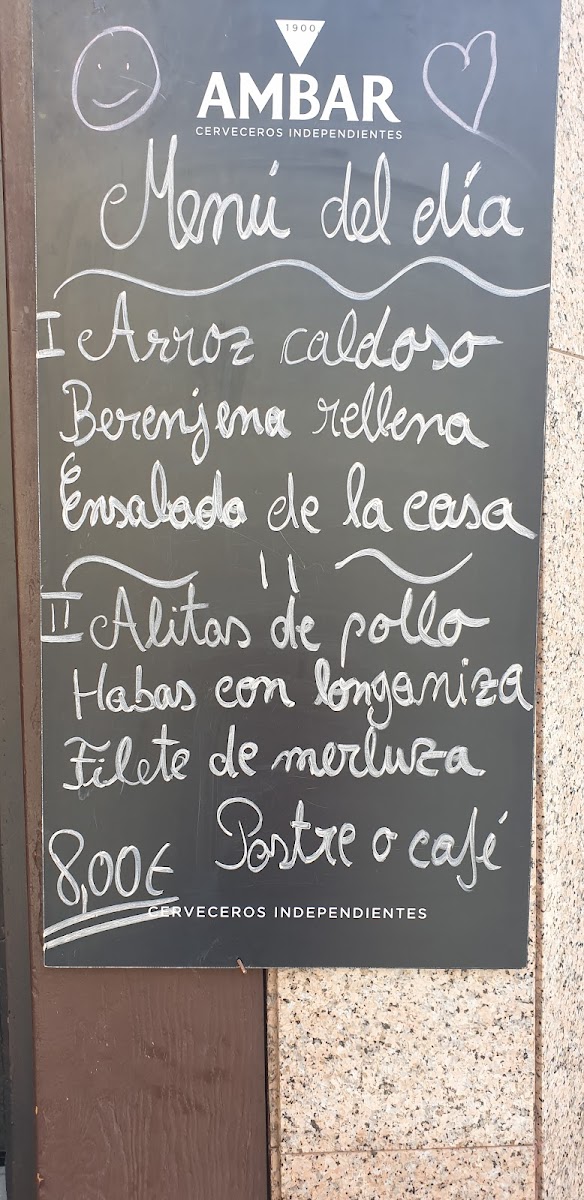 1900
AMBAR
CERVECEROS INDEPENDIENTES
Menú del día
I Arroz caldoso
Berenjena rellena
Ensalada de la casa
II Alitas de pollo
Habas con longaniza
Filete de merluza
Postre o café
8,00€
CERVECEROS INDEPENDIENTES